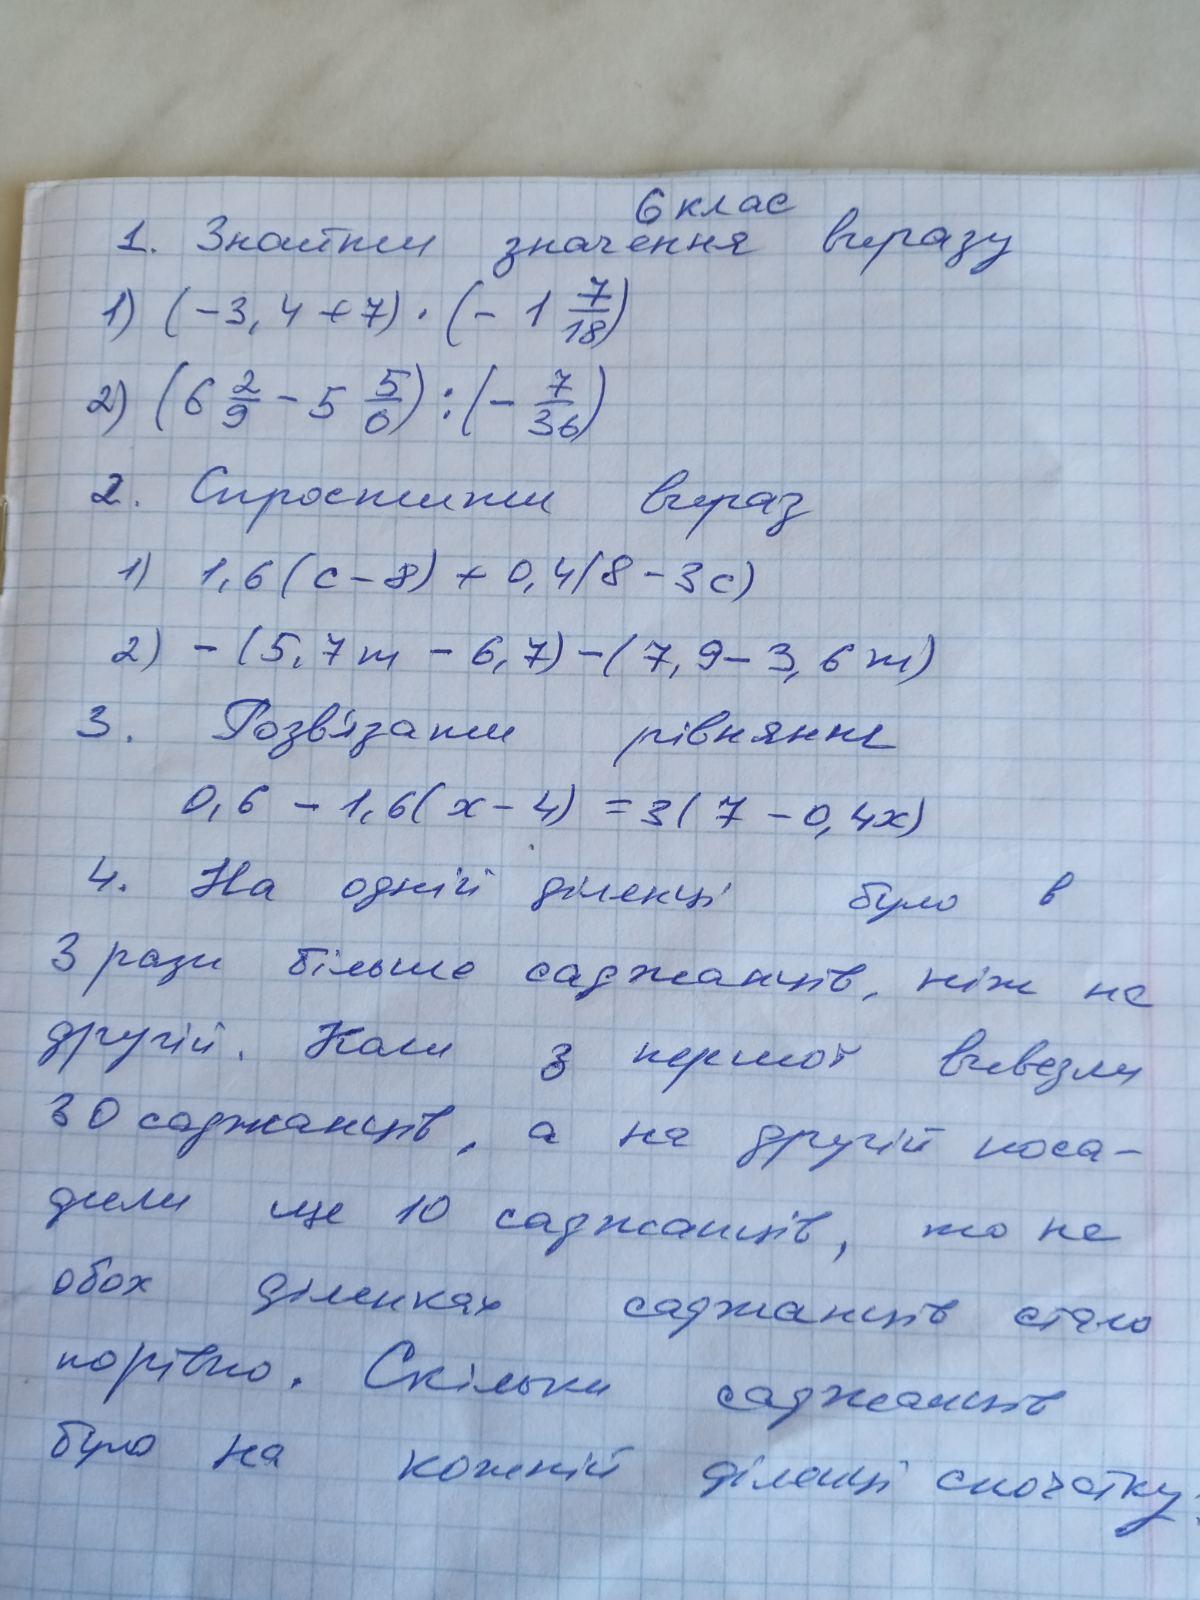 6 клас
1. Знайти значення виразу
1) (-3,4+7)·(-1 7/18)
2) (6 2/9 - 5 5/6):(-7/36)
2. Спростити вираз
1) 1,6(c-8)+0,4(8-3c)
2) -(5,7m-6,7)-(7,9-3,6m)
3. Розв'язати рівняння
0,6-1,6(x-4)=3(7-0,4x)
4. На одній ділянці було в
3 рази більше саджанців, ніж на
другій. Коли з першої вивезли
30 саджанців, а на другій поса-
дили ще 10 саджанців, то на
обох ділянках саджанців стало
порівно. Скільки саджанців
було на кожній ділянці спочатку?